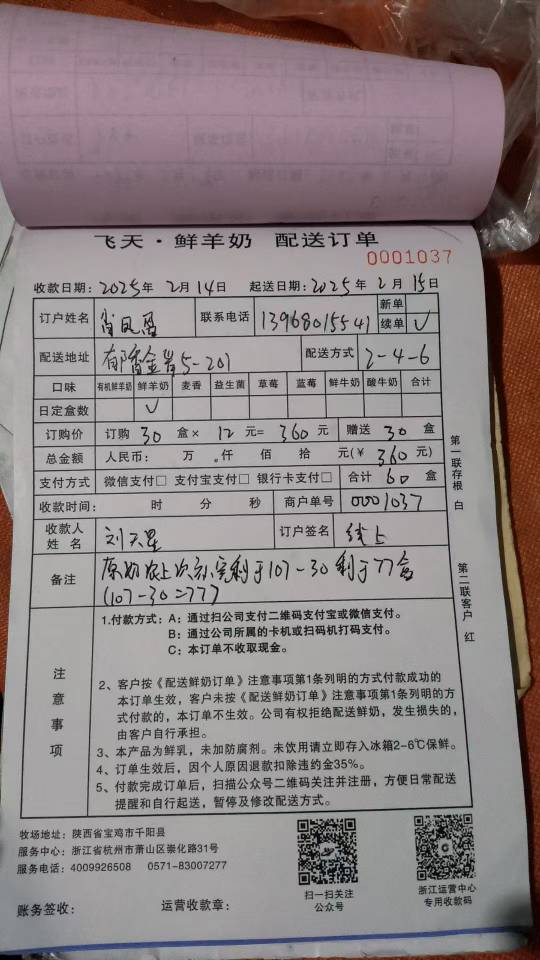 飞天·鲜羊奶 配送订单
0001037
收款日期：2025年 2月 14日 起送日期：2025年 2月 15日
订户姓名 肖凤 联系电话 13968015541 新单
续单 ✓
配送地址 郁香金岸5-201 配送方式 2-4-6
口味 有机鲜羊奶 鲜羊奶 麦香 益生菌 草莓 蓝莓 鲜牛奶 酸牛奶 合计
日定盒数 ✓
订购价 订购 30 盒× 12 元= 360 元 赠送 30 盒
总金额 人民币： 万 仟 佰 拾 元(￥ 360 元)
支付方式 微信支付□ 支付宝支付□ 银行卡支付□ 合计 60 盒
收款时间： 时 分 秒 商户单号 0001037
收款人
姓 名 刘天星 订户签名 线上
备注 原奶 上次 剩于107-30剩于77盒
(107-30=77)
第一联存根 白
第二联客户 红
注意事项
1.付款方式：A：通过扫公司支付二维码支付宝或微信支付。
B：通过公司所属的卡机或扫码机打码支付。
C：本订单不收取现金。
2、客户按《配送鲜奶订单》注意事项第1条列明的方式付款成功的
本订单生效，客户未按《配送鲜奶订单》注意事项第1条列明的方
式付款的，本订单不生效。公司有权拒绝配送鲜奶，发生损失的，
由客户自行承担。
3、本产品为鲜乳，未加防腐剂。未饮用请立即存入冰箱2-6℃保鲜。
4、订单生效后，因个人原因退款扣除违约金35%。
5、付款完成订单后，扫描公众号二维码关注并注册，方便日常配送
提醒和自行起送，暂停及修改配送方式。
牧场地址：陕西省宝鸡市千阳县
服务中心：浙江省杭州市萧山区崇化路31号
服务电话：4009926508 0571-83007277
扫一扫关注
公众号
浙江运营中心
专用收款码
账务签收： 运营收款章：